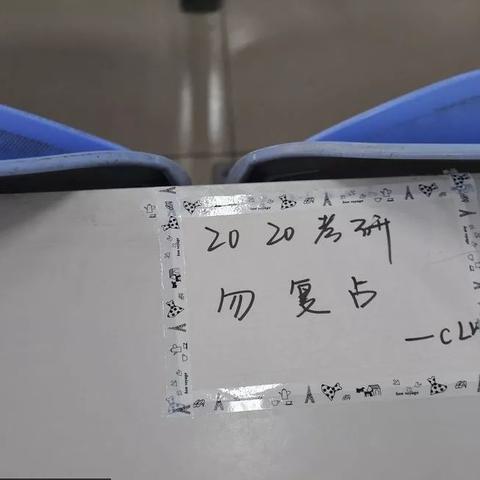 2020考研
勿复占
—CLW